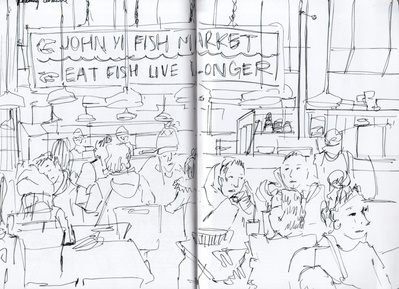 JOHN YI FISH MARKET
EAT FISH LIVE LONGER